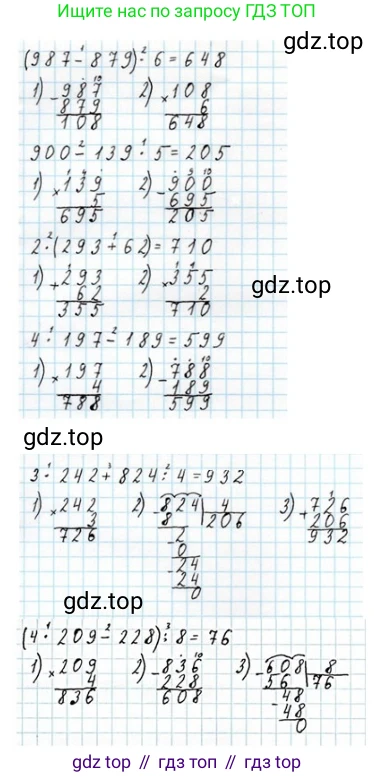 Ищите нас по запросу
ГДЗ ТОП
(987 - 879) · 6 = 648
1) - 987
879
108
2) × 108
6
648
900 - 139 · 5 = 205
1) × 139
5
695
2) - 900
695
205
2 · (293 + 62) = 710
1) + 293
62
355
2) × 355
2
710
gdz.top
4 · 197 - 189 = 599
1) × 197
4
788
2) - 788
189
599
gdz.top
3 · 242 + 824 : 4 = 932
1) × 242
3
726
2) - 824 | 4
8 | 206
- 2
0
- 24
24
0
3) + 726
206
932
gdz.top
(4 · 209 - 228) : 8 = 76
1) × 209
4
836
2) - 836
228
608
3) - 608 | 8
56 | 76
- 48
48
0
gdz.top // gdz.top // gdz.top